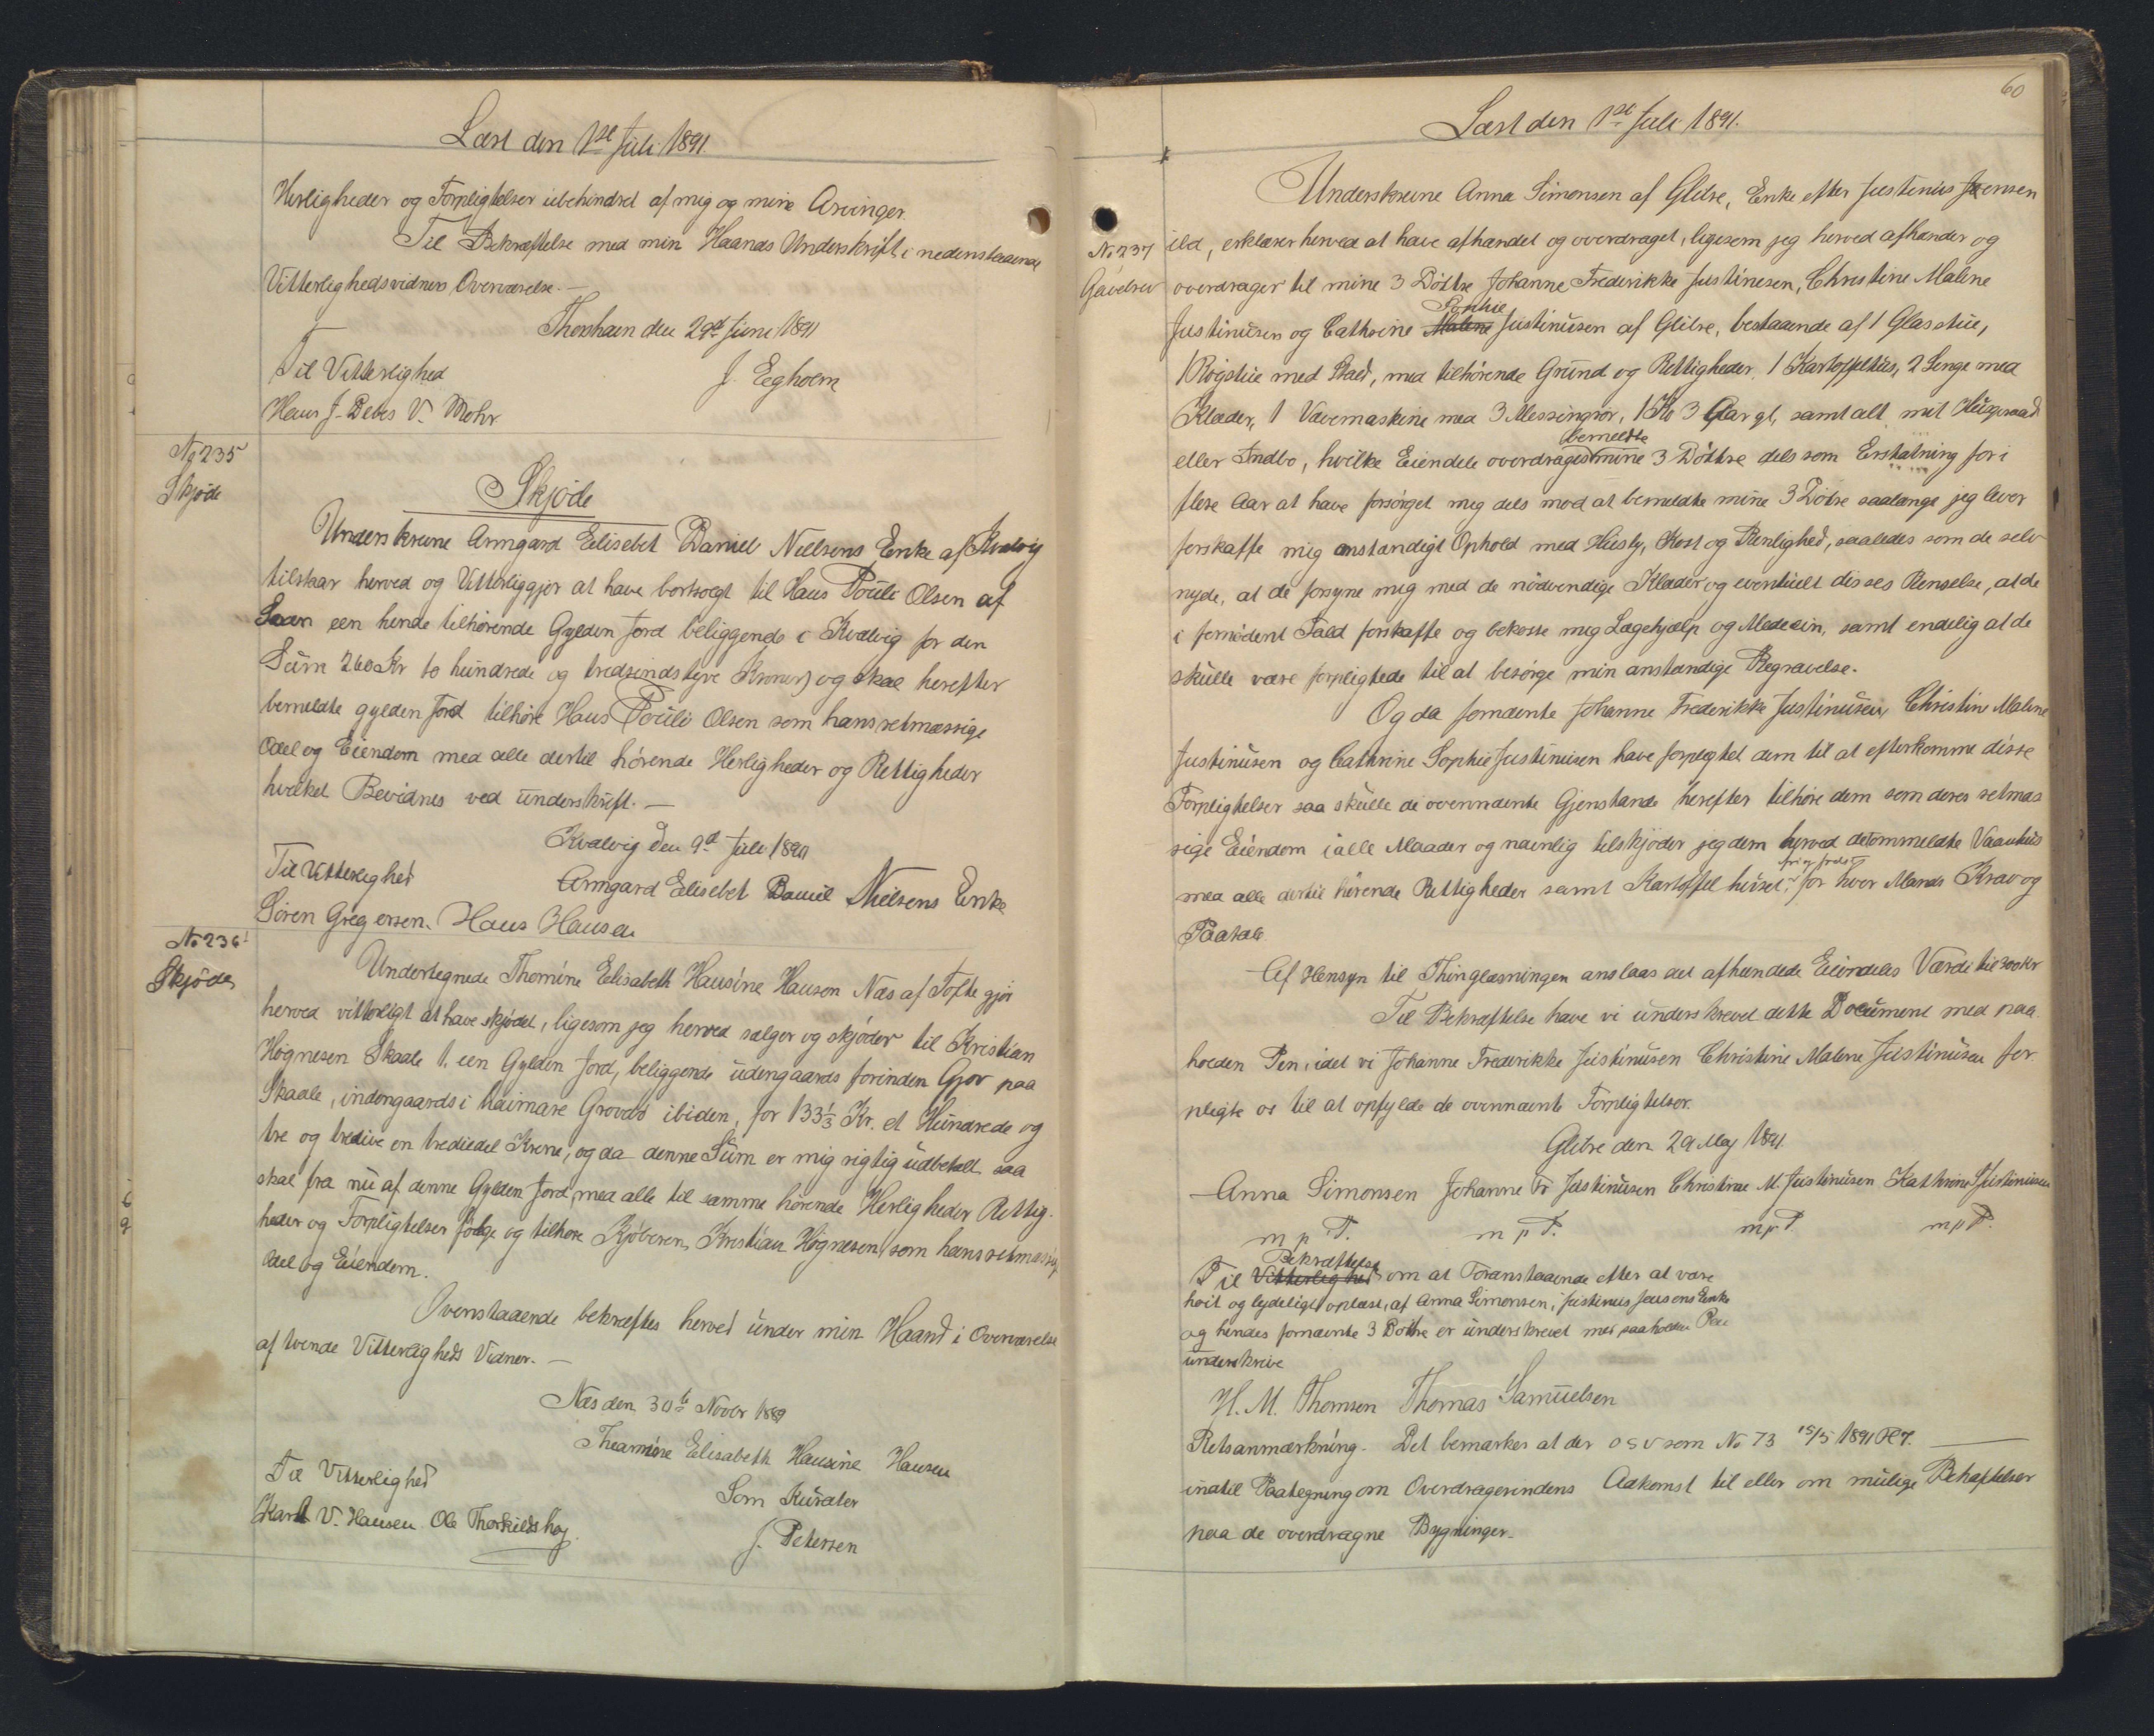 Læst den 1ste Juli 1891.
Herligheder og Forpligtelser ubehindret af mig og mine Arvinger.
Til Bekræftelse med min Haands Underskrift i nedenstaaende
Vitterlighedsvidners Overværelse.—
Thorshavn den 29d Juni 1891
Til Vitterlighed
J. Egholm
Hans J. Debes V. Mohr
No 235
Skjøde
Skjøde
Underskrevne Armgard Elisebet Daniel Nielsens Enke af Kvalvig
tilstaar herved og Vitterliggjør at have bortsolgt til Hans Pouli Olsen af
een hende tilhørende Gylden Jord beliggende i Kvalvig for den
Sum 260 Kr to hundrede og tredsindstyve Kroner) og skal herefter
bemeldte gylden Jord tilhøre Hans Pouli Olsen som hans retmæssige
Odel og Eiendom med alle dertil hørende Herligheder og Rettigheder
hvilket Bevidnes ved underskrift.—
Kvalvig den 9d Juli 1890
Til Vitterlighed
Armgard Elisebet Daniel Nielsens Enke
Søren Gregersen. Hans Hansen
No 236
Skjøde
Undertegnede Thomine Elisabeth Hausine Hanson Næs af Tofte gjør
herved vitterligt at have skjødet, ligesom jeg herved sælger og skjøder til Kristian
Høgnesen Skaale 1. een Gylden Jord, beliggende udengaards forinden Gjov paa
Skaale, indengaards i haimare Grovdo ibiden, for 133⅓ Kr. et Hundrede og
tre og tredive en trediedel Krone, og da denne Sum er mig rigtig udbetalt saa
skal fra nu af denne Gylden Jord med alle til samme hørende Herligheder Rettig-
heder og Forpligtelser følge og tilhøre Kjøberen, Kristian Høgnesen som hans retmæssige
Odel og Eiendom.
Ovenstaaende bekræftes herved under min Haand i Overværelse
af tvende Vitterligheds Vidner.—
Næs den 30te Novbr 1889
Thearmine Elisabeth Hausine Hansen
Til Vitterlighed
Som Kurater
Karl V. Hansen Ole Thorkildshøj.
J. Petersen
60
Læst den 1ste Juli 1891.
No 237
Gavebrev
Underskrevne Anna Simonsen af Glibre, Enke efter Justinus Jensen
ibd, erklærer herved at have afhandet og overdraget, ligesom jeg herved afhænder og
overdrager til mine 3 Døttre Johanne Frederikke Justinesen, Christine Malene
Sophie
Justinusen og Cathrine Malene Justinusen af Glibre, bestaaende af 1 Glasstue,
1 Rogstue med Stald, med tilhørende Grund og Rettigheder, 1 Kartoffelhus, 2 Senge med
Klæder, 1 Vævemaskine med 3 Messingrør, 1 Ko 3 Aar gl, samt alt mit Husgeraad
bemeldte
eller Indbo, hvilke Eiendele overdrages mine 3 Døttre dels som Erstatning for i
flere Aar at have forsørget mig dels mod at bemeldte mine 3 Døtre saalænge jeg lever
forskaffe mig anstændigt Ophold med Husly, Kost og Renlighed, saaledes som de selv
nyde, at de forsyne mig med de nødvendige Klæder og eventuelt disses Renselse, at de
i fornødent Fald forskaffe og bekoste mig Lægehjælp og Medecin, samt endelig at de
skulle være forpligtede til at besørge min anstændige Begravelse.
Og da fornævnte Johanne Frederikke Justinusen, Christine Malene
Justinusen og Cathrine Sophie Justinusen have forpligtet dem til at efterkomme disse
Forpligtelser saa skulle de ovennævnte Gjenstande herefter tilhøre dem som deres retmæs
sige Eiendom i alle Maader og navnlig tilskjøder jeg dem herved detommeldte Vaanhus
fri og frelst
med alle dertil hørende Rettigheder samt Kartoffel huset, for hver Mands Krav og
Paatale
Af Hensyn til Thinglæsningen anslaas det afhændede Eiendeles Værdi til 300 Kr
Til Bekræftelse have vi underskrevet dette Document med paa
holden Pen, idet vi Johanne Frederikke Justinusen Christine Malene Justinusen for
pligte os til at opfylde de ovennævnte Forpligtelser.
Glibre den 29 Maj 1891
Anna Simonsen Johanne Fr Justinusen Christine M Justinusen Kathrine Justinusen
m p P. m p P. m p P m p P.
Bekræftelse
Til Vitterlighed om at Foranstaaende efter at være
høit og lydeligt oplæst, af Anna Simonsen, Justinus Jensens Enke
og hendes fornævnte 3 Døttre er underskrevet med paaholden Pen
underskrive
H. M. Thomsen Thomas Samuelsen
Retsanmærkning. Det bemærkes at der o s v som No 73 15/5 1891
indtil Paategning om Overdragerindens Adkomst til eller om mulige Behæftelser
paa de overdragne Bygninger.